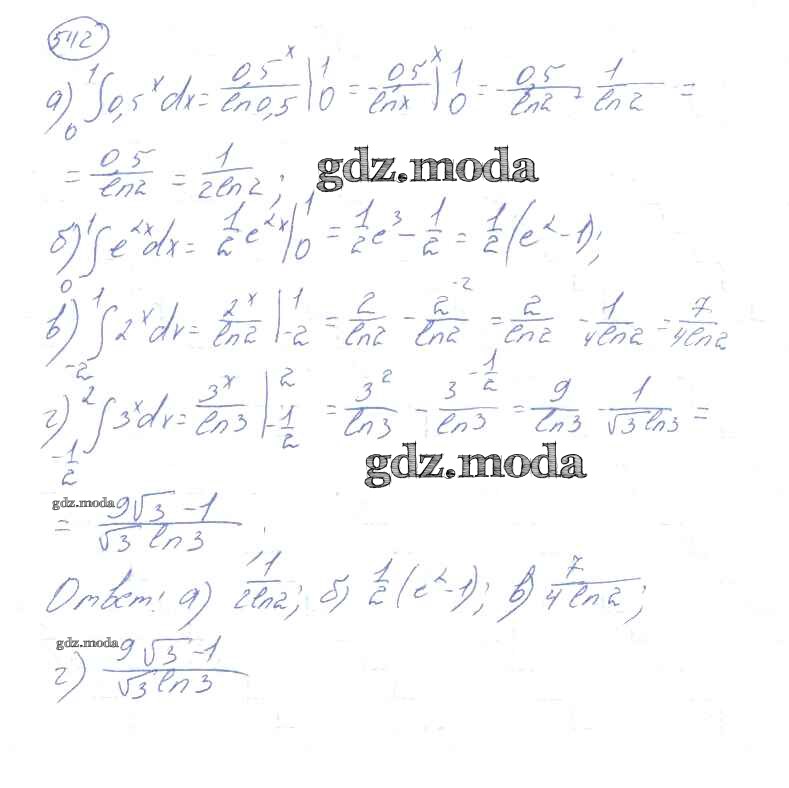 542
а) ₀¹∫0,5ˣdx = 0,5ˣ/ln0,5 |¹₀ = -0,5ˣ/lnx |¹₀ = -0,5/ln2 + 1/ln2 =
= 0,5/ln2 = 1/2ln2; gdz.moda
б) ₀¹∫e²ˣdx = 1/2 e²ˣ |¹₀ = 1/2 e³ - 1/2 = 1/2 (e² - 1);
в) ₋₂¹∫2ˣdx = 2ˣ/ln2 |¹₋₂ = 2/ln2 - 2⁻²/ln2 = 2/ln2 - 1/4ln2 = 7/4ln2
г) ₋₁/₂²∫3ˣdx = 3ˣ/ln3 |²₋₁/₂ = 3²/ln3 - 3^(-1/2)/ln3 = 9/ln3 - 1/√3 ln3 =
gdz.moda
gdz.moda
= 9√3 - 1/√3 ln3.
Ответ: а) 1/2ln2; б) 1/2 (e² - 1); в) 7/4 ln2;
gdz.moda
г) 9√3 - 1/√3 ln3